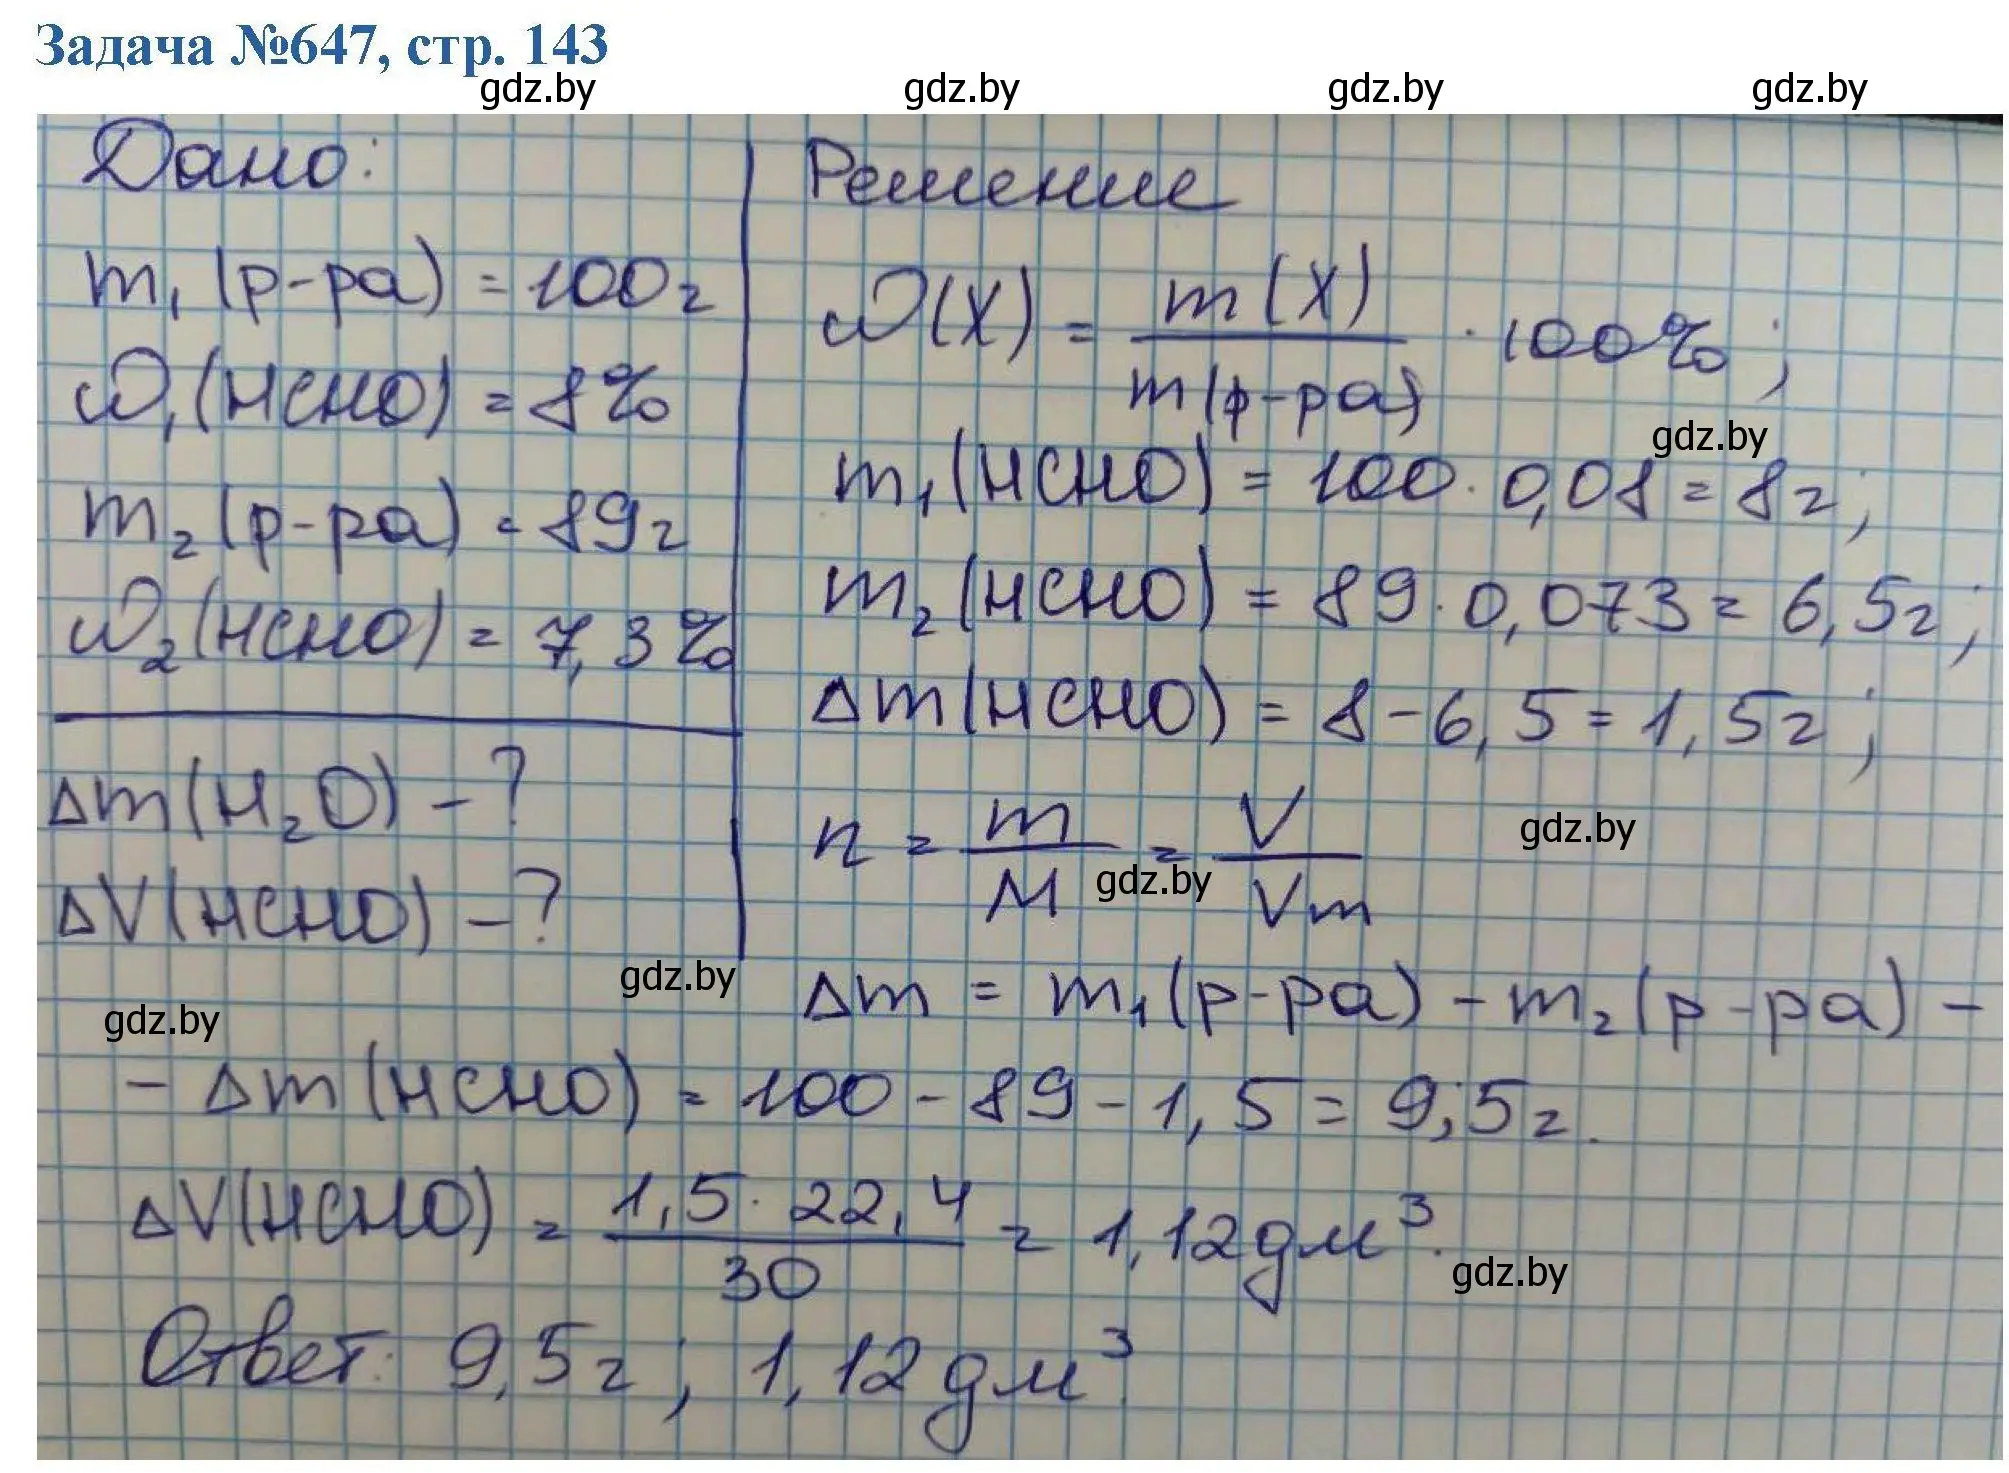 Задача №647, стр. 143
gdz.by gdz.by gdz.by gdz.by
Дано:
m₁(р-ра) = 100г
ω₁(HCHO) = 8%
m₂(р-ра) = 89г
ω₂(HCHO) = 7,3%
Δm(H₂O) - ?
ΔV(HCHO) - ?
gdz.by
gdz.by
Решение
ω(X) = m(X) / m(р-ра) · 100%;
gdz.by
m₁(HCHO) = 100 · 0,08 = 8г;
m₂(HCHO) = 89 · 0,073 = 6,5г;
Δm(HCHO) = 8 - 6,5 = 1,5г;
n = m / M = V / Vm
gdz.by
gdz.by
Δm = m₁(р-ра) - m₂(р-ра) -
- Δm(HCHO) = 100 - 89 - 1,5 = 9,5г.
ΔV(HCHO) = 1,5 · 22,4 / 30 = 1,12дм³.
gdz.by
Ответ: 9,5г; 1,12дм³.